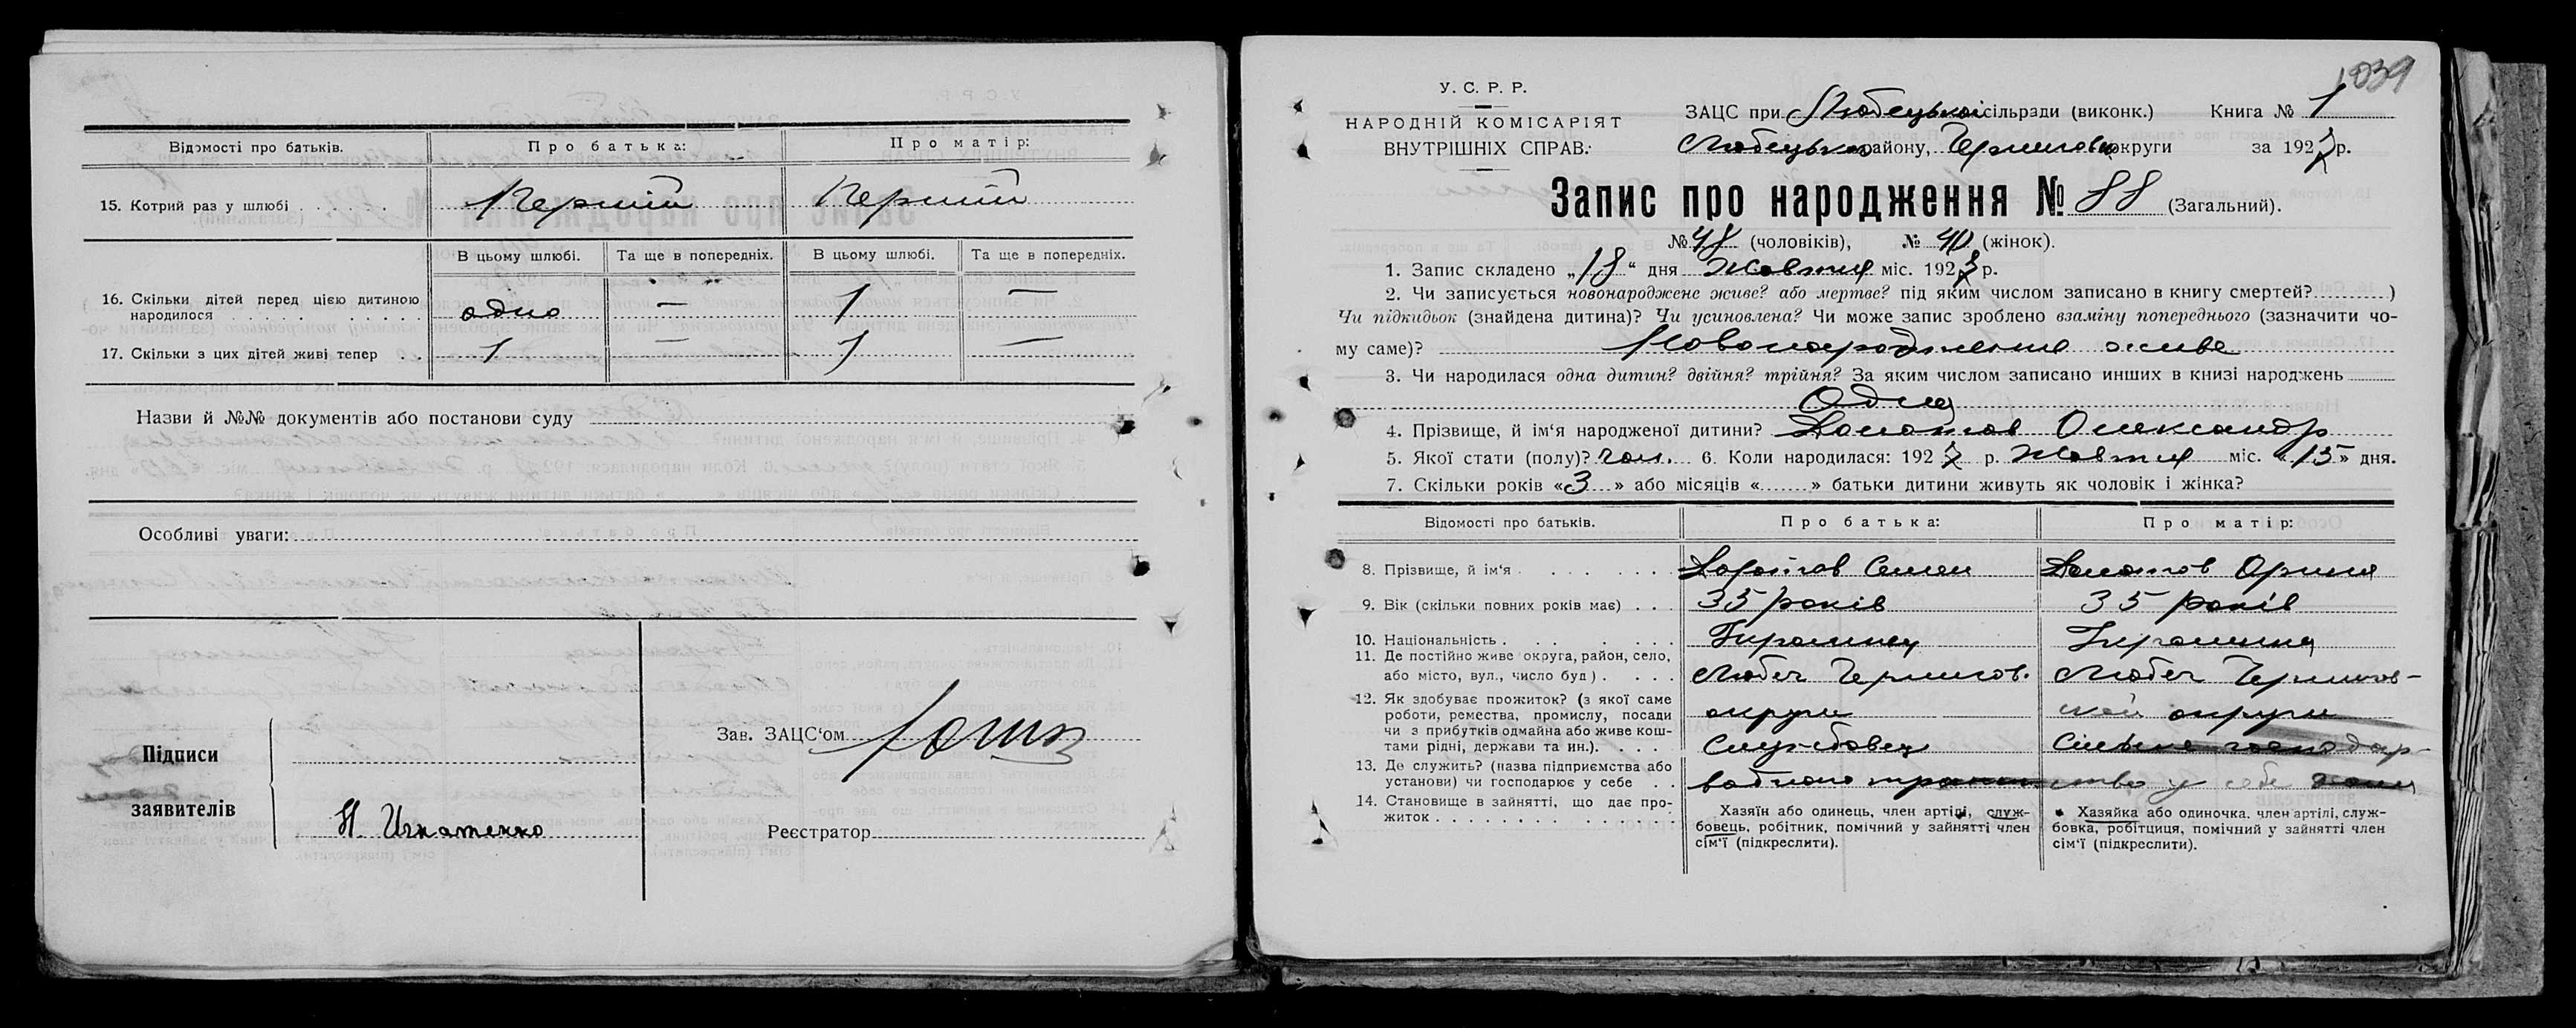 Відомості про батьків. Про батька: Про матір:
15. Котрий раз у шлюбі Перший Перший
В цьому шлюбі. Та ще в попередніх. В цьому шлюбі. Та ще в попередніх.
16. Скільки дітей перед цією дитиною
народилося одно — 1 —
17. Скільки з цих дітей живі тепер 1 — 1 —
Назви й №№ документів або постанови суду
Особливі уваги:
Підписи
заявителів
Н. Игнатенко
Зав. ЗАЦС‘ом
Реєстратор
1039
У. С. Р. Р.
НАРОДНІЙ КОМІСАРІЯТ
ВНУТРІШНІХ СПРАВ.
ЗАЦС при Любецької сільради (виконк.) Книга № 1
Любецького району, Чернигов округи за 1927 р.
Запис про народження № 88 (Загальний).
№ 48 (чоловіків), № 40 (жінок).
1. Запис складено „18“ дня Жовтня міс. 1927 р.
2. Чи записується новонароджене живе? або мертве? під яким числом записано в книгу смертей? )
Чи підкидьок (знайдена дитина)? Чи усиновлена? Чи може запис зроблено взаміну попереднього (зазначити чо-
му саме)? Новонароджене живе
3. Чи народилася одна дитин? двійня? трійня? За яким числом записано инших в книзі народжень
Одна
4. Прізвище, й ім‘я народженої дитини? Олександр
5. Якої стати (полу)? чол. 6. Коли народилася: 1927 р. Жовтня міс. «15» дня.
7. Скільки років «3» або місяців « » батьки дитини живуть як чоловік і жінка?
Відомості про батьків. Про батька: Про матір:
8. Прізвище, й ім‘я Семен Орина
9. Вік (скільки повних років має) 35 років 35 років
10. Національність Українец Украинка
11. Де постійно живе округа, район, село,
або місто, вул., число буд). Любеч Чернигов. Любеч Чернигов-
12. Як здобуває прожиток? (з якої саме
роботи, ремества, промислу, посади округи округи
чи з прибутків одмайна або живе кош-
тами рідні, держави та ин.). Службовец
13. Де служить? (назва підприємства або
установи) чи господарює у себе водного у себе
14. Становище в зайнятті, що дає про-
житок
Хазяїн або одинець, член артілі, служ-
бовець, робітник, помічний у зайнятті член
сім‘ї (підкреслити).
Хазяйка або одиночка. член артілі, служ-
бовка, робітциця, помічний у зайнятті член
сім‘ї (підкреслити).